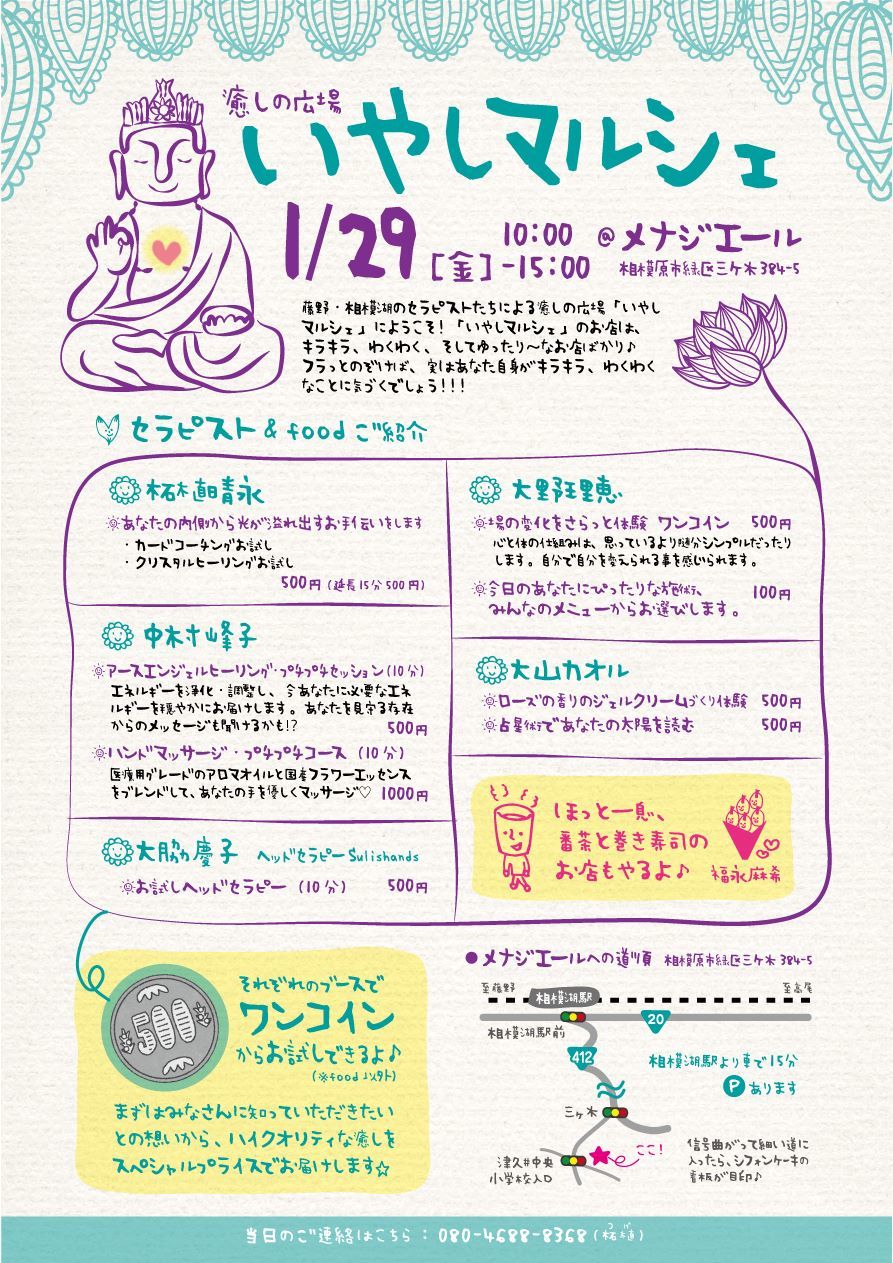 癒しの広場
いやしマルシェ
1/29[金]
10:00
-15:00
@メナジエール
相模原市緑区三ケ木384-5
藤野・相模湖のセラピストたちによる癒しの広場「いやし
マルシェ」にようこそ!「いやしマルシェ」のお店は、
キラキラ、わくわく、そしてゆったり〜なお店ばかり♪
フラっとのぞけば、実はあなた自身がキラキラ、わくわく
なことに気づくでしょう!!!
セラピスト&foodご紹介
柘植晴永
あなたの内側から光が溢れ出すお手伝いをします
・カードコーチングお試し
・クリスタルヒーリングお試し
500円(延長15分500円)
中村峰子
アースエンジェルヒーリング・プチプチセッション(10分)
エネルギーを浄化・調整し、今あなたに必要なエネ
ルギーを穏やかにお届けします。あなたを見守る存在
からのメッセージも聞けるかも!? 500円
ハンドマッサージ・プチプチコース(10分)
医療用グレードのアロマオイルと国産フラワーエッセンス
をブレンドして、あなたの手を優しくマッサージ♡ 1000円
大脇慶子 ヘッドセラピーSulishands
お試しヘッドセラピー(10分) 500円
大野理恵
場の変化をさらっと体験 ワンコイン 500円
心と体の仕組みは、思っているより随分シンプルだったり
します。自分で自分を変えられる事を感じられます。
今日のあなたにぴったりな施術、 100円
みんなのメニューからお選びします。
大山カオル
ローズの香りのジェルクリームづくり体験 500円
占星術であなたの太陽を読む 500円
ほっと一息、
番茶と巻き寿司の
お店もやるよ♪
福永麻希
500
それぞれのブースで
ワンコイン
からお試しできるよ♪
(※food以外)
まずはみなさんに知っていただきたい
との想いから、ハイクオリティな癒しを
スペシャルプライスでお届けします☆
●メナジエールへの道順 相模原市緑区三ケ木384-5
至藤野
相模湖駅
至高尾
相模湖駅前
20
412
相模湖駅より車で15分
Pあります
三ケ木
ここ!
津久井中央
小学校入口
信号曲がって細い道に
入ったら、シフォンケーキの
看板が目印♪
当日のご連絡はこちら:080-4688-8368(柘植)
つげ